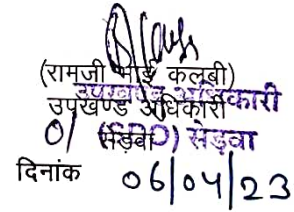 (रामजी भाई कलबी)
उपखण्ड अधिकारी
उपखण्ड अधिकारी
सेडवा
(SDO) सेड़वा
दिनांक 06/04/23